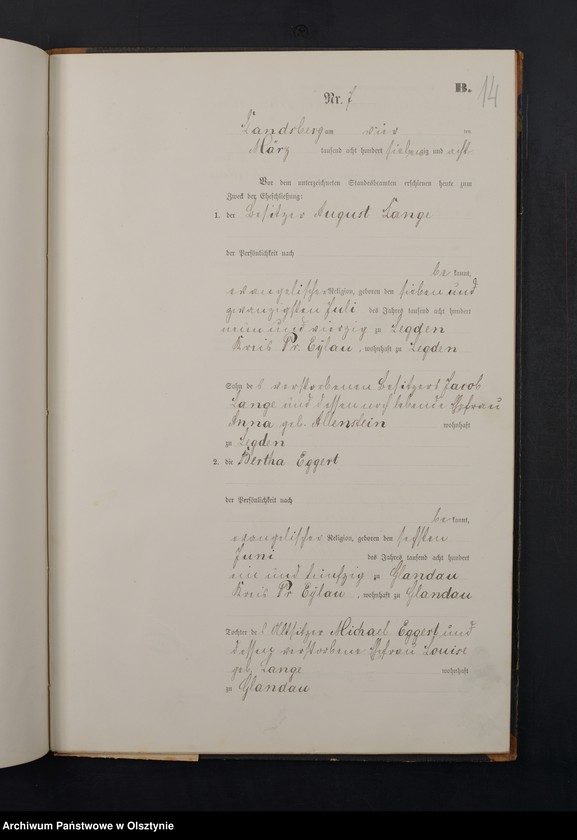 B. 14
Nr. 7
Landsberg am vier te
März tausend acht hundert siebenzig und acht
Vor dem unterzeichneten Standesbeamten erschienen heute zum
Zweck der Eheschließung:
1. der Besitzer August Lange
der Persönlichkeit nach
be kannt,
evangelischer Religion, geboren den sieben und
zwanzigsten Juli des Jahres tausend acht hundert
neun und vierzig zu Legden
Kreis Pr. Eylau, wohnhaft zu Legden
Sohn des verstorbenen Besitzers Jacob
Lange und dessen noch lebende Ehefrau
Anna geb. Allenstein wohnhaft
zu Legden
2. die Bertha Eggert
der Persönlichkeit nach
be kannt,
evangelischer Religion, geboren den sechsten
Juni des Jahres tausend acht hundert
und fünfzig zu Glandau
Kreis Pr Eylau, wohnhaft zu Glandau
Tochter des Altsitzer Michael Eggert und
dessen verstorbene Ehefrau Louise
geb. Lange wohnhaft
zu Glandau
Archiwum Państwowe w Olsztynie